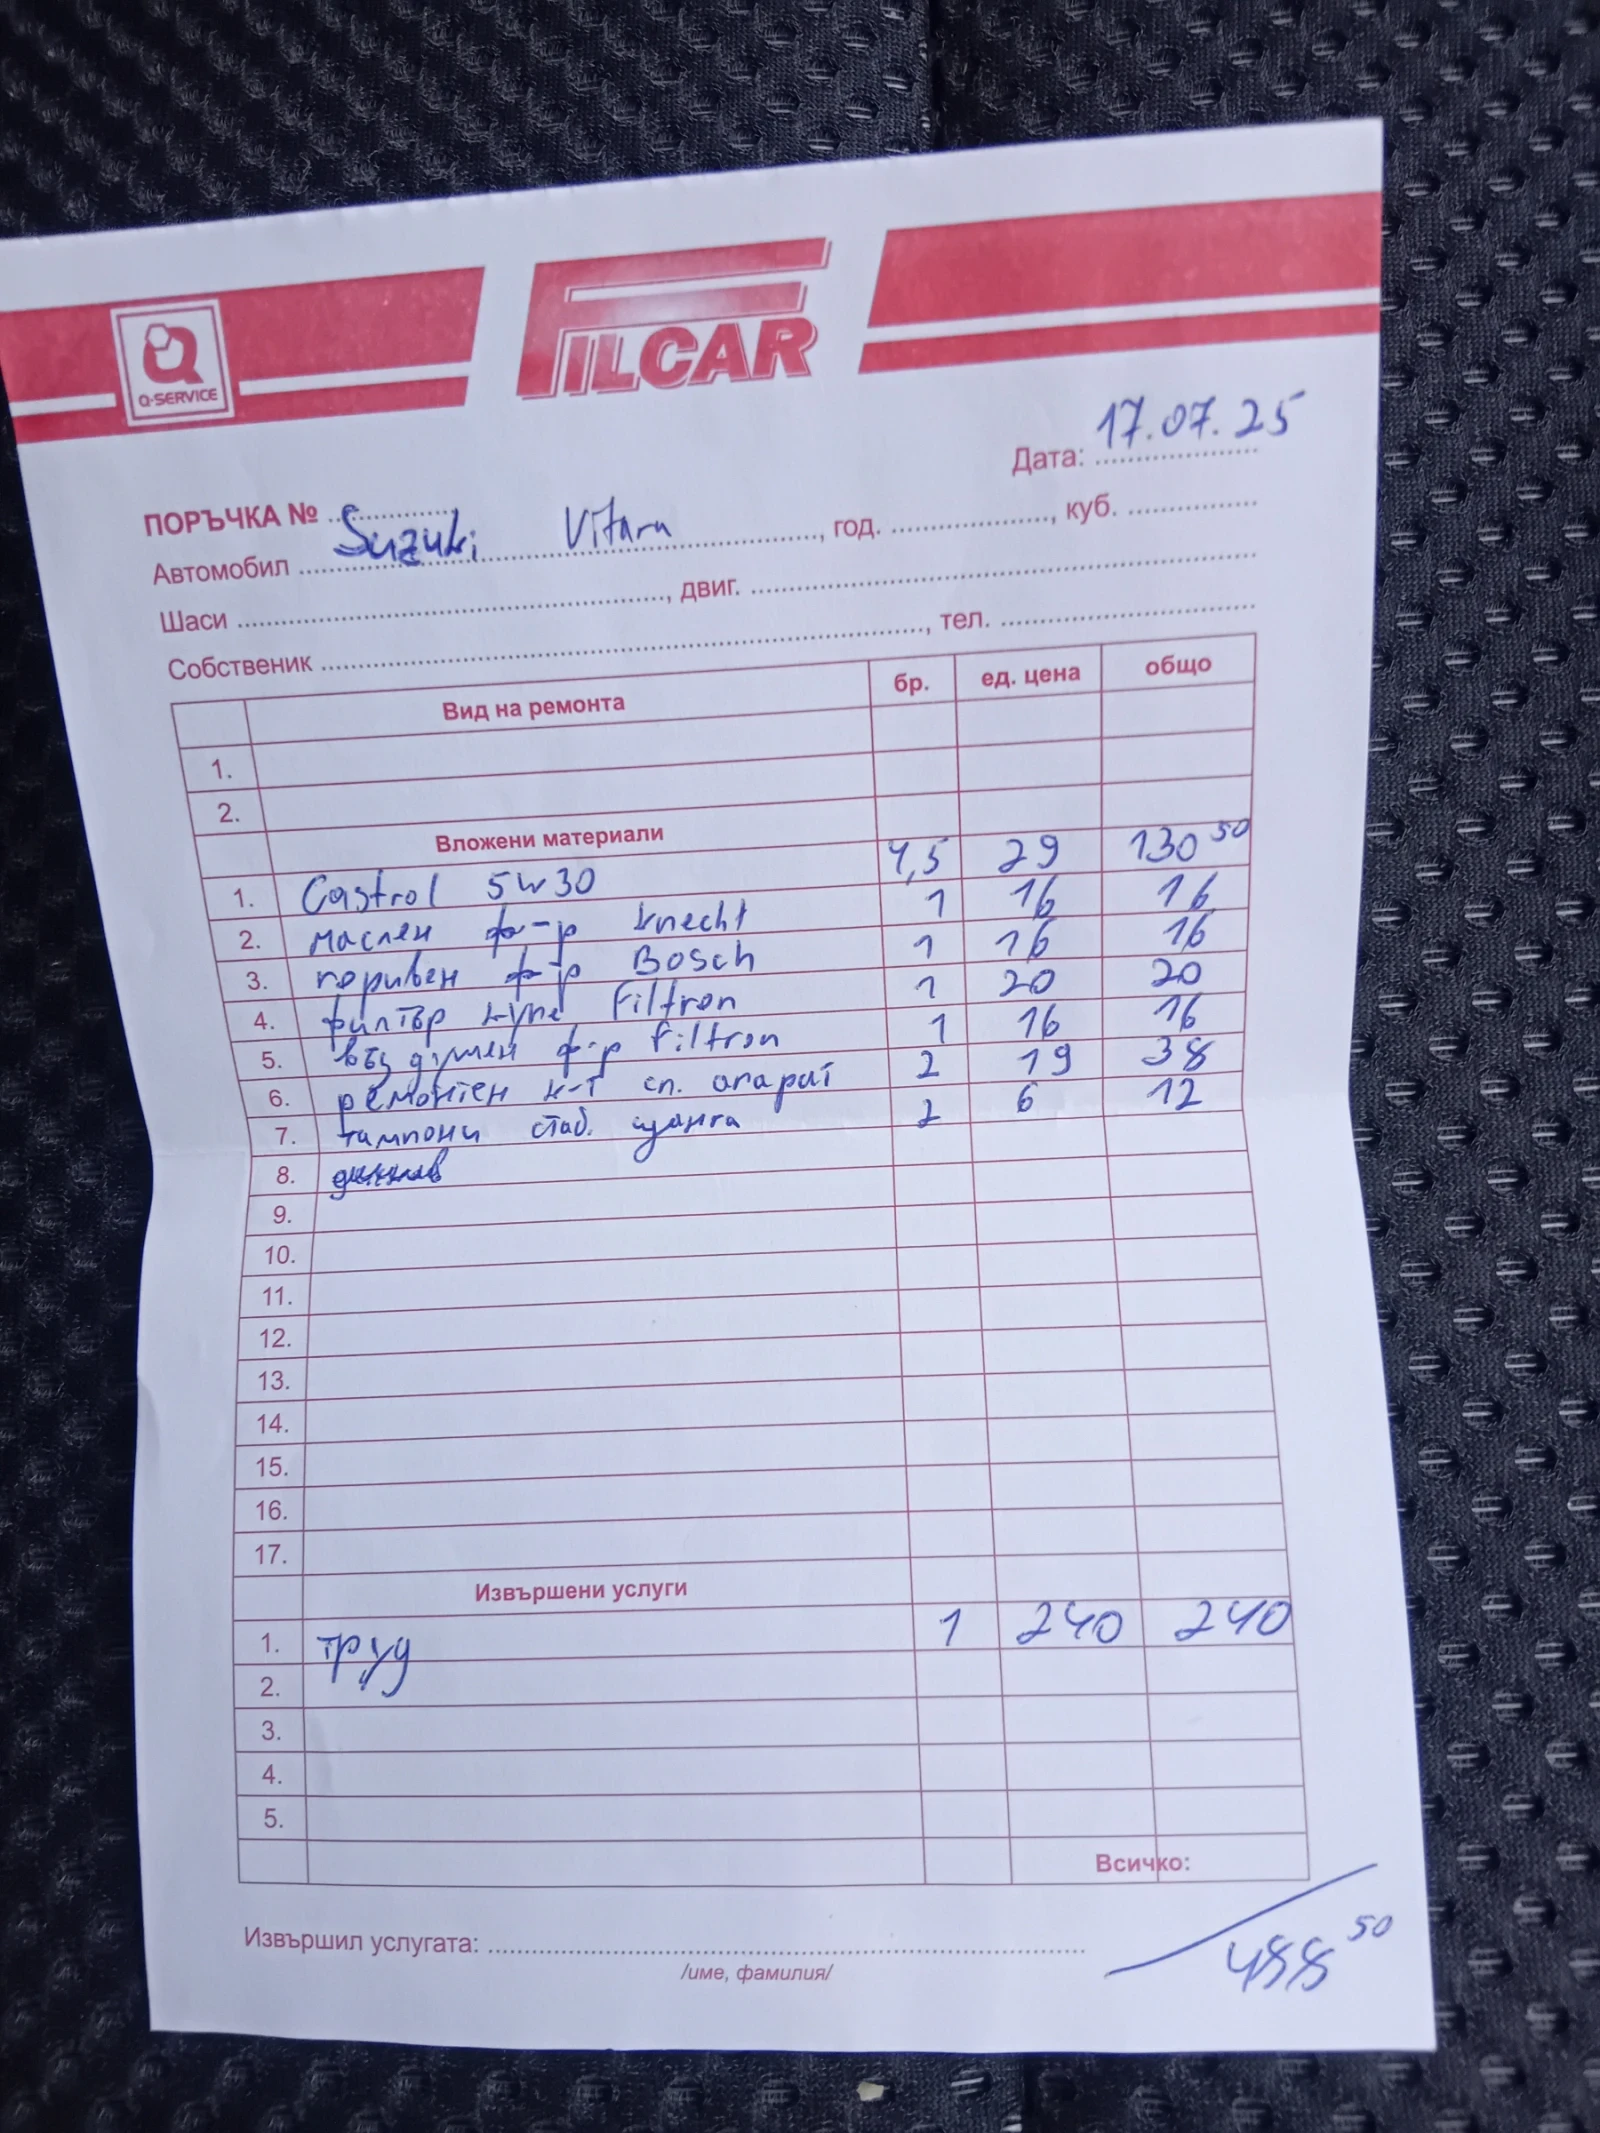 Q-SERVICE
FILCAR
Дата: 17.07.25
ПОРЪЧКА № ..........
Автомобил Suzuki Vitara, год. .........., куб. ..........
Шаси .........., двиг. ..........
Собственик .........., тел. ..........
Вид на ремонта бр. ед. цена общо
1.
2.
Вложени материали
1. Castrol 5w30 4,5 29 130 50
2. маслен ф-р knecht 1 16 16
3. горивен ф-р Bosch 1 16 16
4. филтър купе Filtron 1 20 20
5. въздушен ф-р Filtron 1 16 16
6. ремонтен к-т сп. апарат 2 19 38
7. тампони стаб. щанга 2 6 12
8.
9.
10.
11.
12.
13.
14.
15.
16.
17.
Извършени услуги
1. труд 1 240 240
2.
3.
4.
5.
Всичко:
488 50
Извършил услугата: ..........
/име, фамилия/